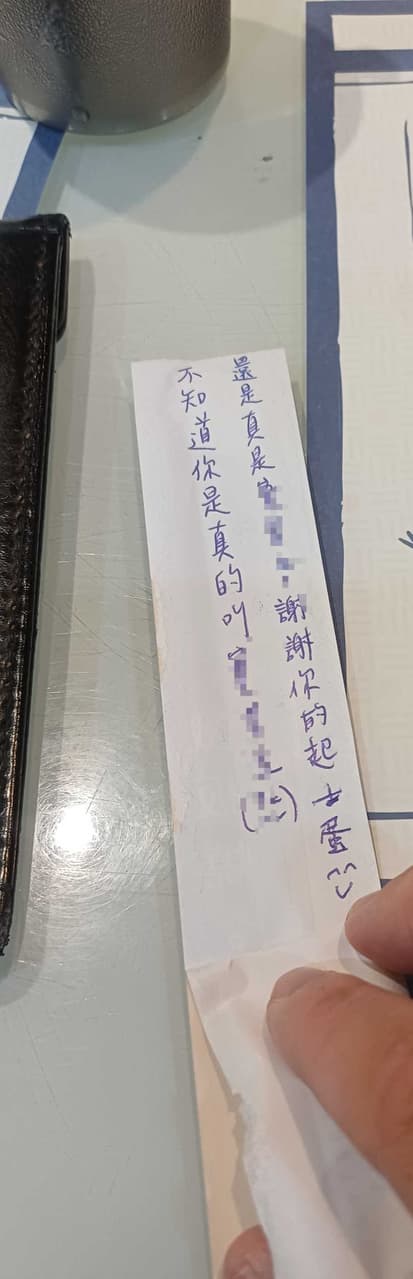 不知道你是真的叫
還是真是 謝謝你的起士蛋